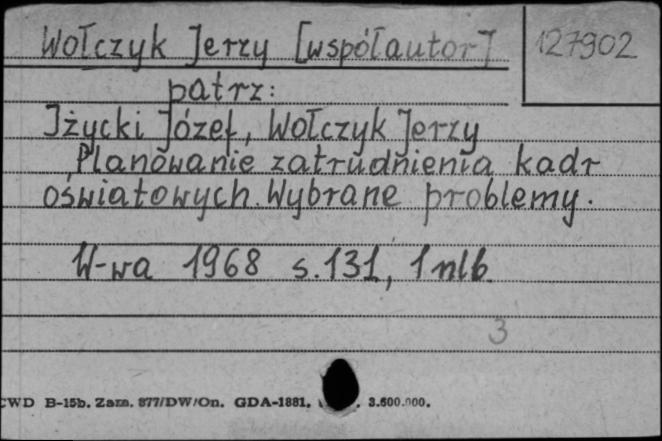 Wołczyk Jerzy [współautor] 127902
patrz:
Iżycki Józef, Wołczyk Jerzy
Planowanie zatrudnienia kadr
oświatowych. Wybrane problemy.
W-wa 1968 s.131, 1 nlb.
3
CWD B-15b. Zam. 877/DW/On. GDA-1881. 3.600.000.